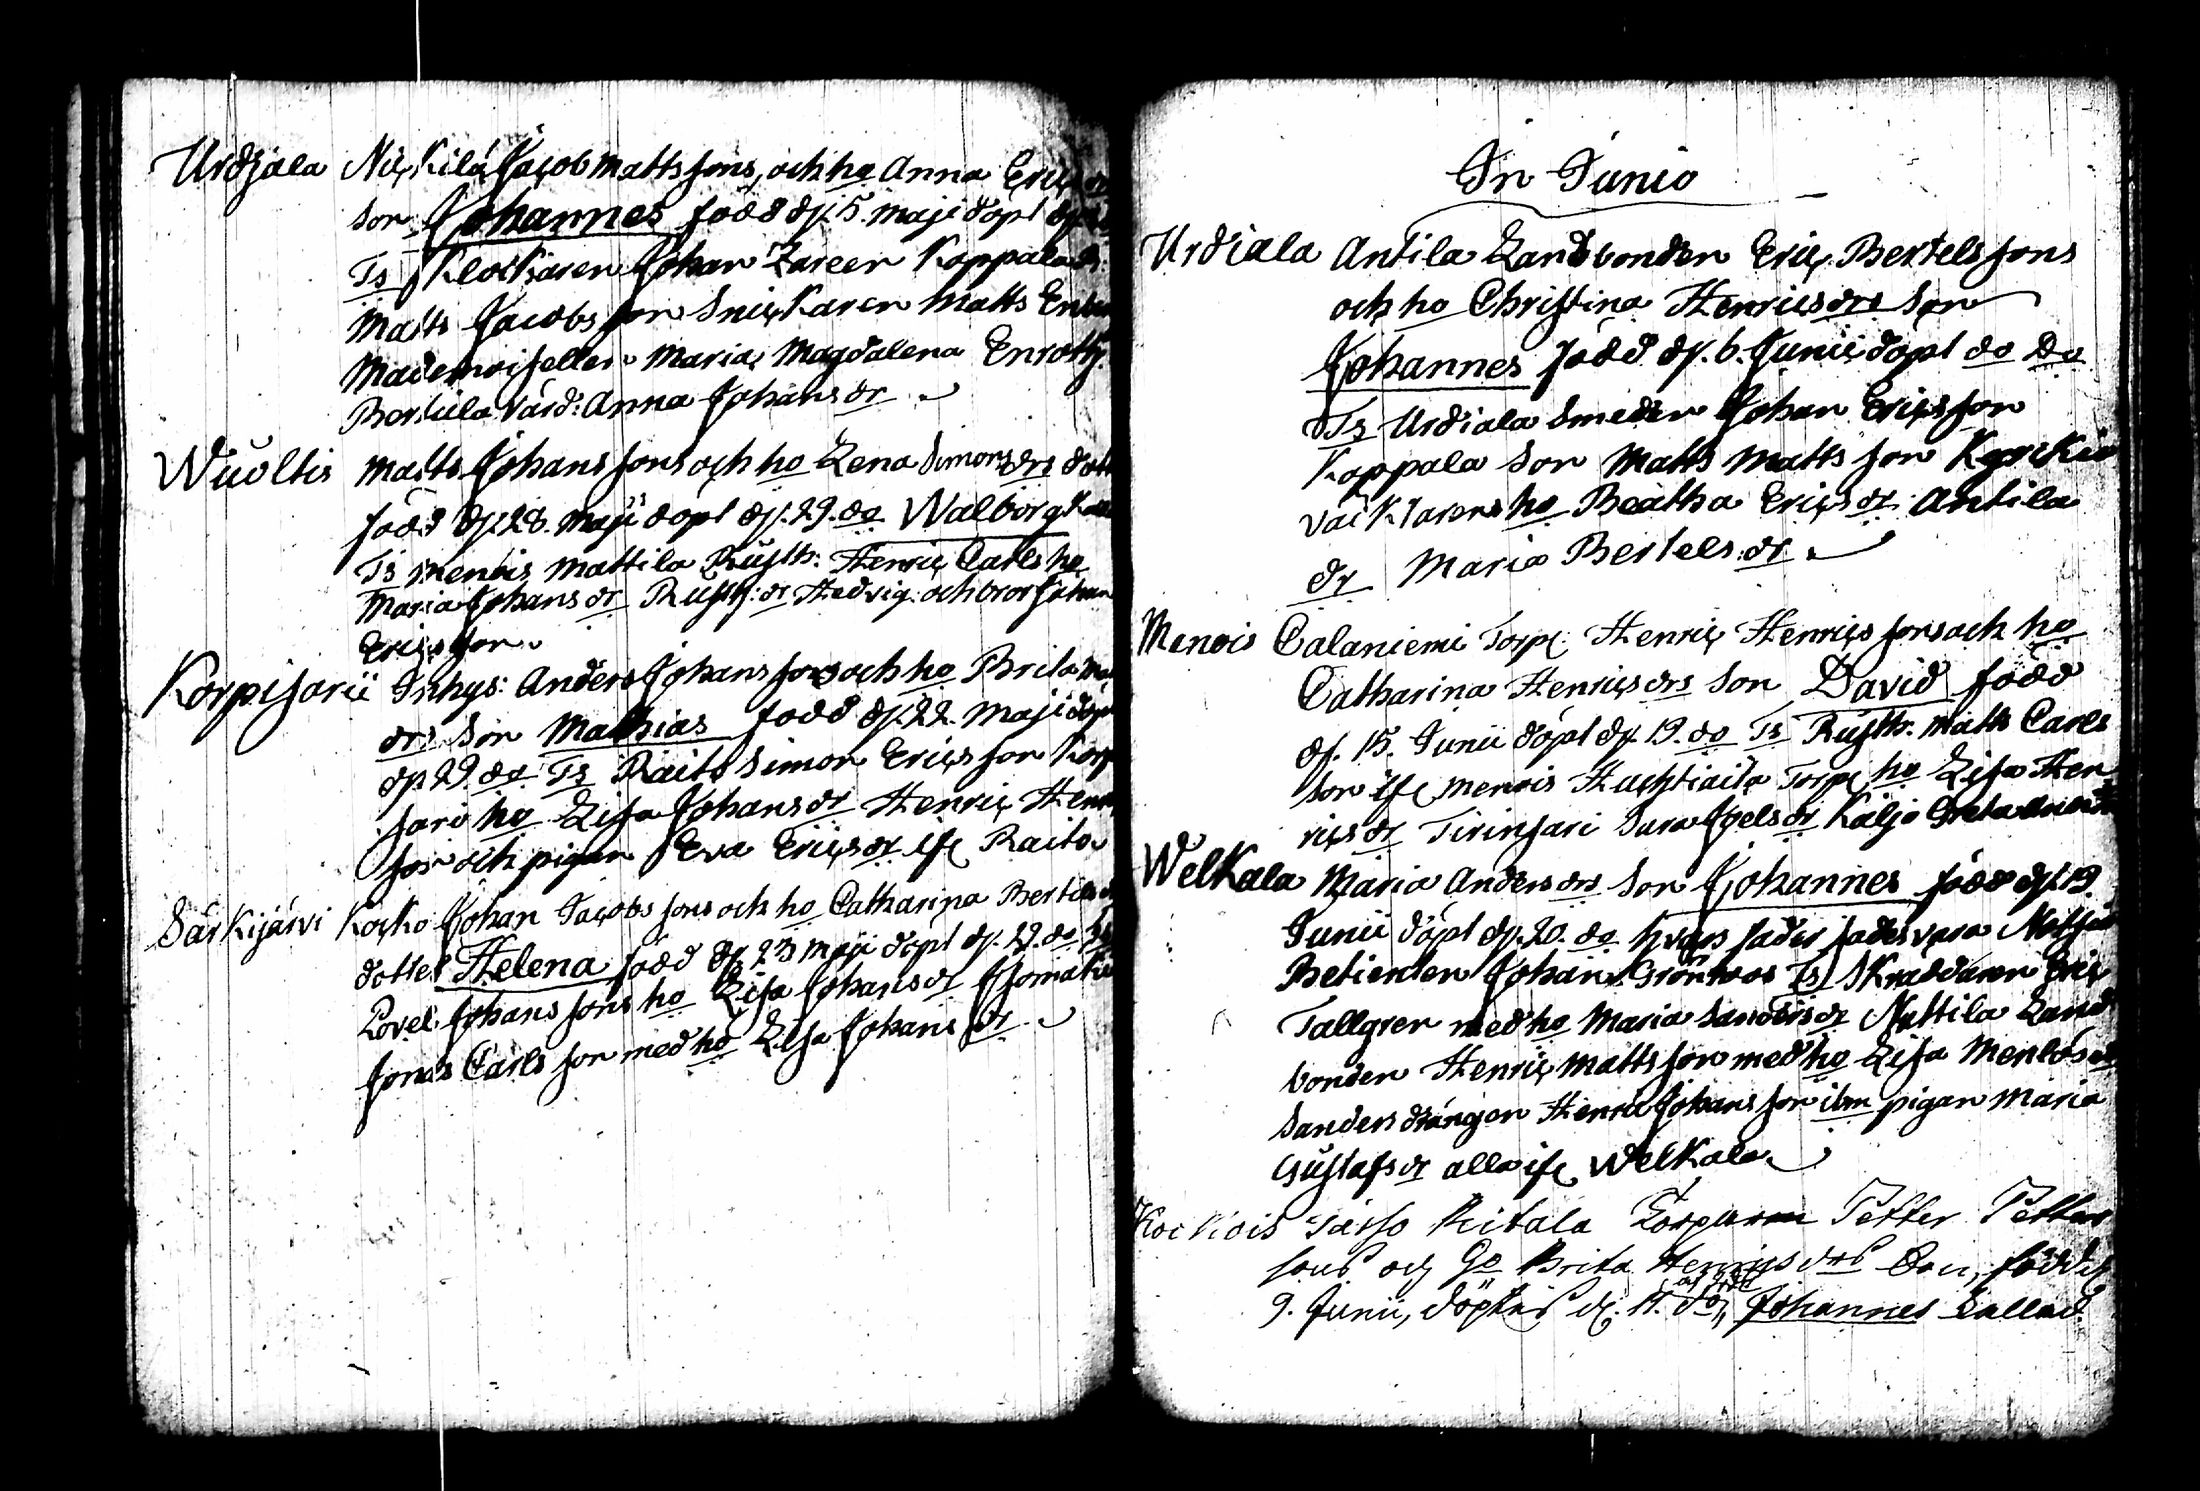 Urdjala Nickilä Jacob Mattssons, och ho Anna Erics
son Johannes född d. 5. Maji döpt
Ts Klockaren Johan Zareen Kappala
Matts Jacobsson Snickaren Matts
Mademoisellen Maria Magdalena Enroth
Bertula värd: Anna Johans dr
Wuoltis Matts Johans sons och ho Lena Simons drs dott
född d. 28. Maji döpt d. 29. do Walborg
Ts Menois Mattila Rusth: Henric Carls ho
Maria Johans dr Rusth: dr Hedvig och bror Johan
Ericsson
Korpisarii Inhys: Anders Johans sons och ho Brita
drs son Mathias född d. 22. Maji döpt
d. 29. do Ts Raito Simon Erics son Korpi
sari ho Lisa Johans dr Henric Hen
son och pigan Eva Erics dr ifr Raito
Särkijärvi Kocko Johan Jacobs sons och ho Catharina Bertils
dotter Helena född d. 23 Maji döpt d. 29. do Ts
Povel Johans sons ho Lisa Johans dr
Jonas Carls son med ho Lisa Johans dr
In Junio
Urdiala Antila Landbonden Eric Bertels sons
och ho Christina Henrics drs son
Johannes född d. 6. Junii döpt do Do
Ts Urdiala Smeden Johan Ericsson
Kappala son Matts Matts son
ho Beatha Erics dr Antila
dr Maria Bertels dr
Menois Calaniemi Torp: Henric Henrics sons och ho
Catharina Henrics drs son David född
d. 15. Junii döpt d. 19. do Ts Rusth: Matts Carls
son ifr Menois Torp: ho Lisa Hen
rics dr Tirinsari Sara dr Käljo Greta
Welkala Maria Anders drs son Johannes född d. 19.
Junii döpt d. 20. do hvars fader säges vara
Betienten Johan Grönroos Ts Skraddaren Eric
Tallgren med ho Maria Sanders dr Nuttila Land
bonden Henric Mattsson med ho Lisa
Sanders drängen Henric Johans son ibm pigan Maria
Gustafs dr alla ifr Welkala
Kockois Ritala Torparen Petter Petters
sons och Ho Brita Henrics drs Son, född d.
9. Junii, döptes d. 11. do, Johannes kallad.